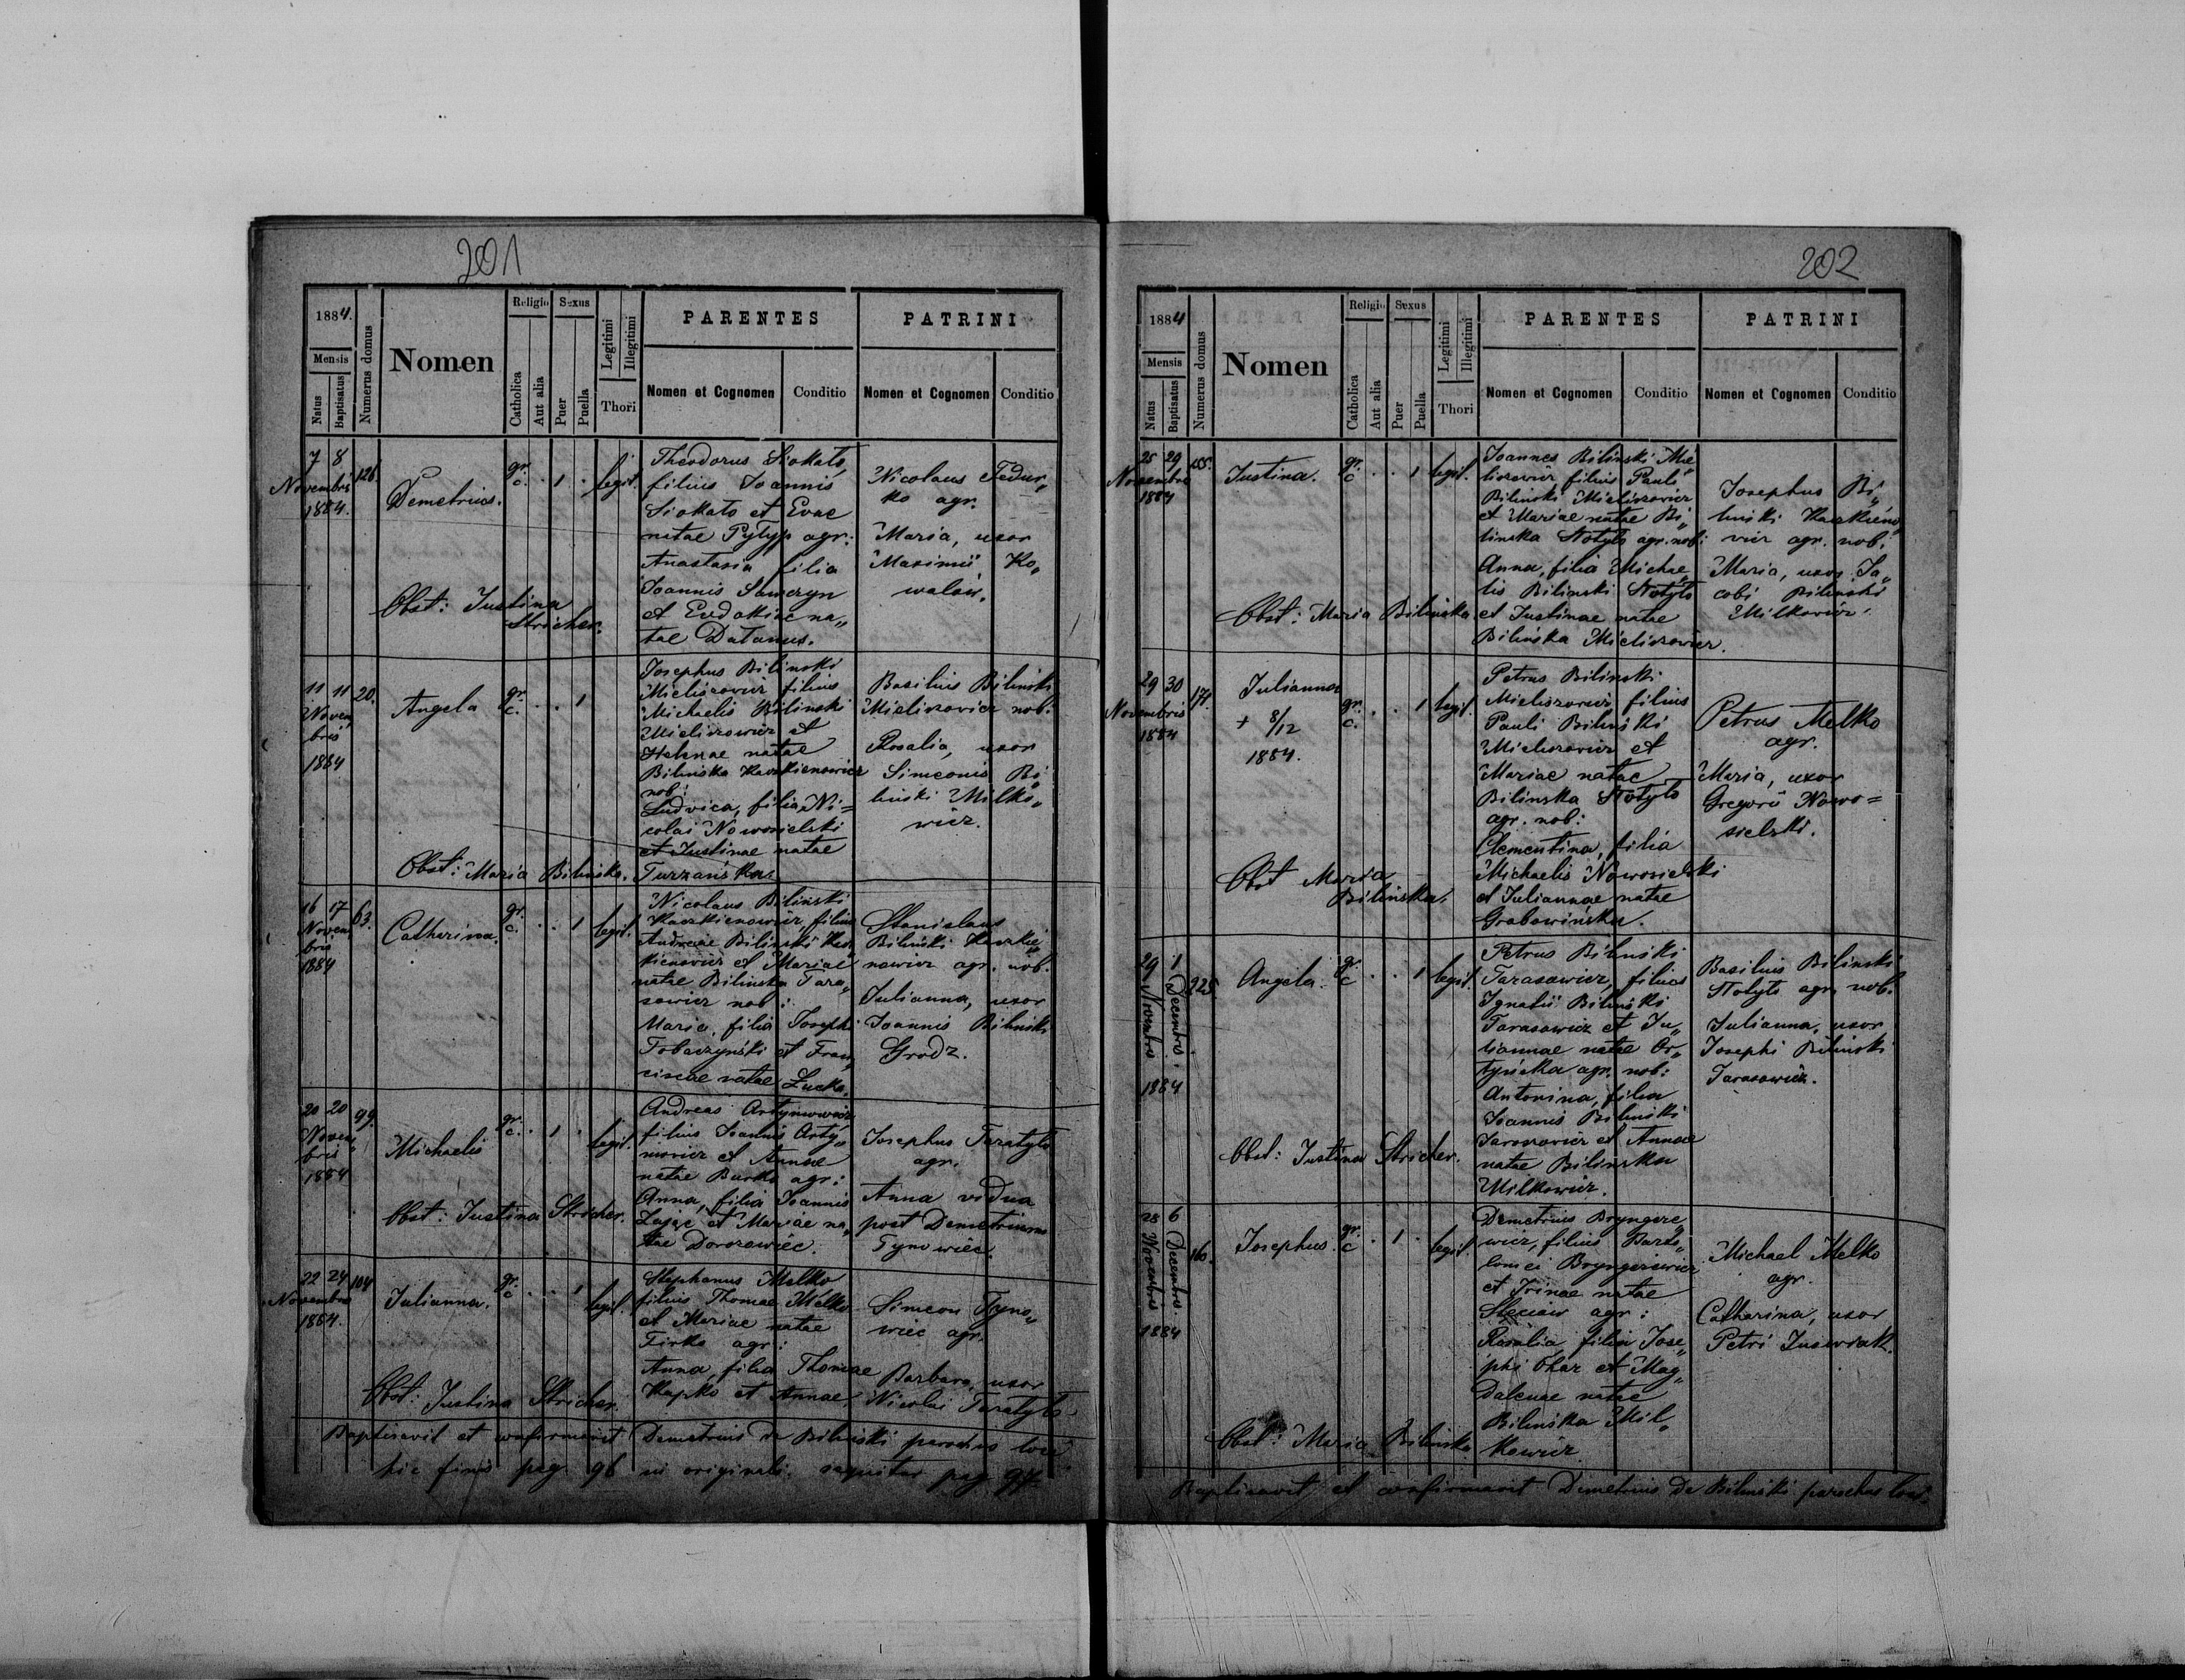 201
1884.
Mensis
Natus
Baptisatus
Numerus domus
Nomen
Religio
Catholica
Aut alia
Sexus
Puer
Puella
Legitimi
Illegitimi
Thori
PARENTES
Nomen et Cognomen
Conditio
PATRINI
Nomen et Cognomen
Conditio
7 8
Novembris
1884.
126.
Demetrius.
gr. c. . 1 . legit.
Obst: Justina
Stricher.
Theodorus Siokało,
filius Joannis
Siokało et Evae
natae Pyłyp agr:
Anastasia filia
Joannis
et Eudokiae na„
tae
Nicolaus Fedur„
ko agr.
Maria, uxor
Maximii Ko„
walów.
11 11
Novem
bris
1884
20.
Angela
gr. c. . . 1
Obst: Maria Bilinska.
Josephus Bilinski
Mieliszowicz filius
Michaelis Bilinski
Mieliszowicz et
Helenae natae
Bilinska Kaszkienowicz
nob:
Ludvica, filia Ni=
colai Nowosielski
et Justinae natae
Turzańska.
Basilius Bilinski
Mieliszowicz nob:
Rosalia, uxor
Simeonis Bi„
linski Milko„
wicz.
16 17
Novem
bris
1884
63.
Catharina.
gr. c. . . 1 legit.
Nicolaus Bilinski
Kaszkienowicz, filius
Andreae Bilinski Kasz„
kienowicz et Mariae
natae Bilinska Tara„
sowicz nob:
Maria, filia Josephi
Tobaczynski et Fran„
ciscae natae Łucka.
Stanislaus
Bilinski Kaszkie„
nowicz agr. nob.
Julianna, uxor
Joannis Bilinski
Grodz.
20 20
Novem„
bris
1884
99.
Michaelis
gr. c. . 1 . legit.
Obst: Justina Stricher.
Andreas Artymowicz
filius Joannis Arty„
mowicz et Annae
natae Burko agr:
Anna, filia Joannis
Zając et Mariae na„
tae Dorozowiec.
Josephus Taratyło
agr.
Anna vidua
post Demetrium
Tynowiec.
22 24
Novembris
1884.
104
Julianna.
gr. c . . 1 legit.
Obst: Justina Stricher.
Stephanus Melko
filius Thomae Melko
et Mariae natae
Firko agr:
Anna, filia Thomae
Kapko et Annae.
Simeon Tyno„
wiec agr.
Barbara, uxor
Nicolai Taratyło
Baptisavit et confirmavit Demetrius de Bilinski parochus loci
hic finis pag 96 in originali. sequitur pag. 97.
202
1884
Mensis
Natus
Baptisatus
Numerus domus
Nomen
Religio
Catholica
Aut alia
Sexus
Puer
Puella
Legitimi
Illegitimi
Thori
PARENTES
Nomen et Cognomen
Conditio
PATRINI
Nomen et Cognomen
Conditio
25 29
Novembris
1884
155.
Justina.
gr. c . . 1 legit.
Obst: Maria Bilinska
Joannes Bilinski Mie„
liszowicz, filius Pauli
Bilinski Mieliszowicz
et Mariae natae Bi„
linska Stotyło agr. nob:
Anna, filia Michae„
lis Bilinski Stotyło
et Justinae natae
Bilinska Mieliszowicz.
Josephus Bi„
linski Kaszkieno„
wicz agr. nob.
Maria, uxor Ja„
cobi Bilinski
Milkowicz.
29 30
Novembris
1884
171.
Julianna
+ 8/12
1884.
gr. c. . . 1 legit.
Obst Maria
Bilinska.
Petrus Bilinski
Mieliszowicz, filius
Pauli Bilinski
Mieliszowicz et
Mariae natae
Bilinska Stotyło
agr. nob:
Clementina, filia
Michaelis Nowosielski
et Juliannae natae
Grabowinska.
Petrus Melko
agr.
Maria, uxor
Gregorii Nowo=
sielski.
29 Novembris
1 Decembris.
1884
225
Angela.
gr. c . . 1 legit.
Obst: Justina Stricher.
Petrus Bilinski
Tarasowicz, filius
Ignatii Bilinski
Tarasowicz et Ju„
liannae natae Or„
tyńska agr. nob:
Antonina, filia
Joannis Bilinski
Jaroszowicz et Annae
natae Bilinska
Milkowicz.
Basilius Bilinski
Stotyło agr. nob.
Julianna, uxor
Josephi Bilinski
Tarasowicz.
28 Novembris
6 Decembris.
1884
16.
Josephus.
gr. c . 1 . legit.
Obst: Maria Bilinska
Demetrius Bryngiere„
wicz, filius Barto„
lomei Bryngierewicz
et Irinae natae
Steciów agr:
Rosalia, filia Jose„
phi Ohar et Mag„
dalenae natae
Bilinska Mil„
kowicz.
Michael Melko
agr.
Catharina, uxor
Petri
Baptisavit et confirmavit Demetrius de Bilinski parochus loci.